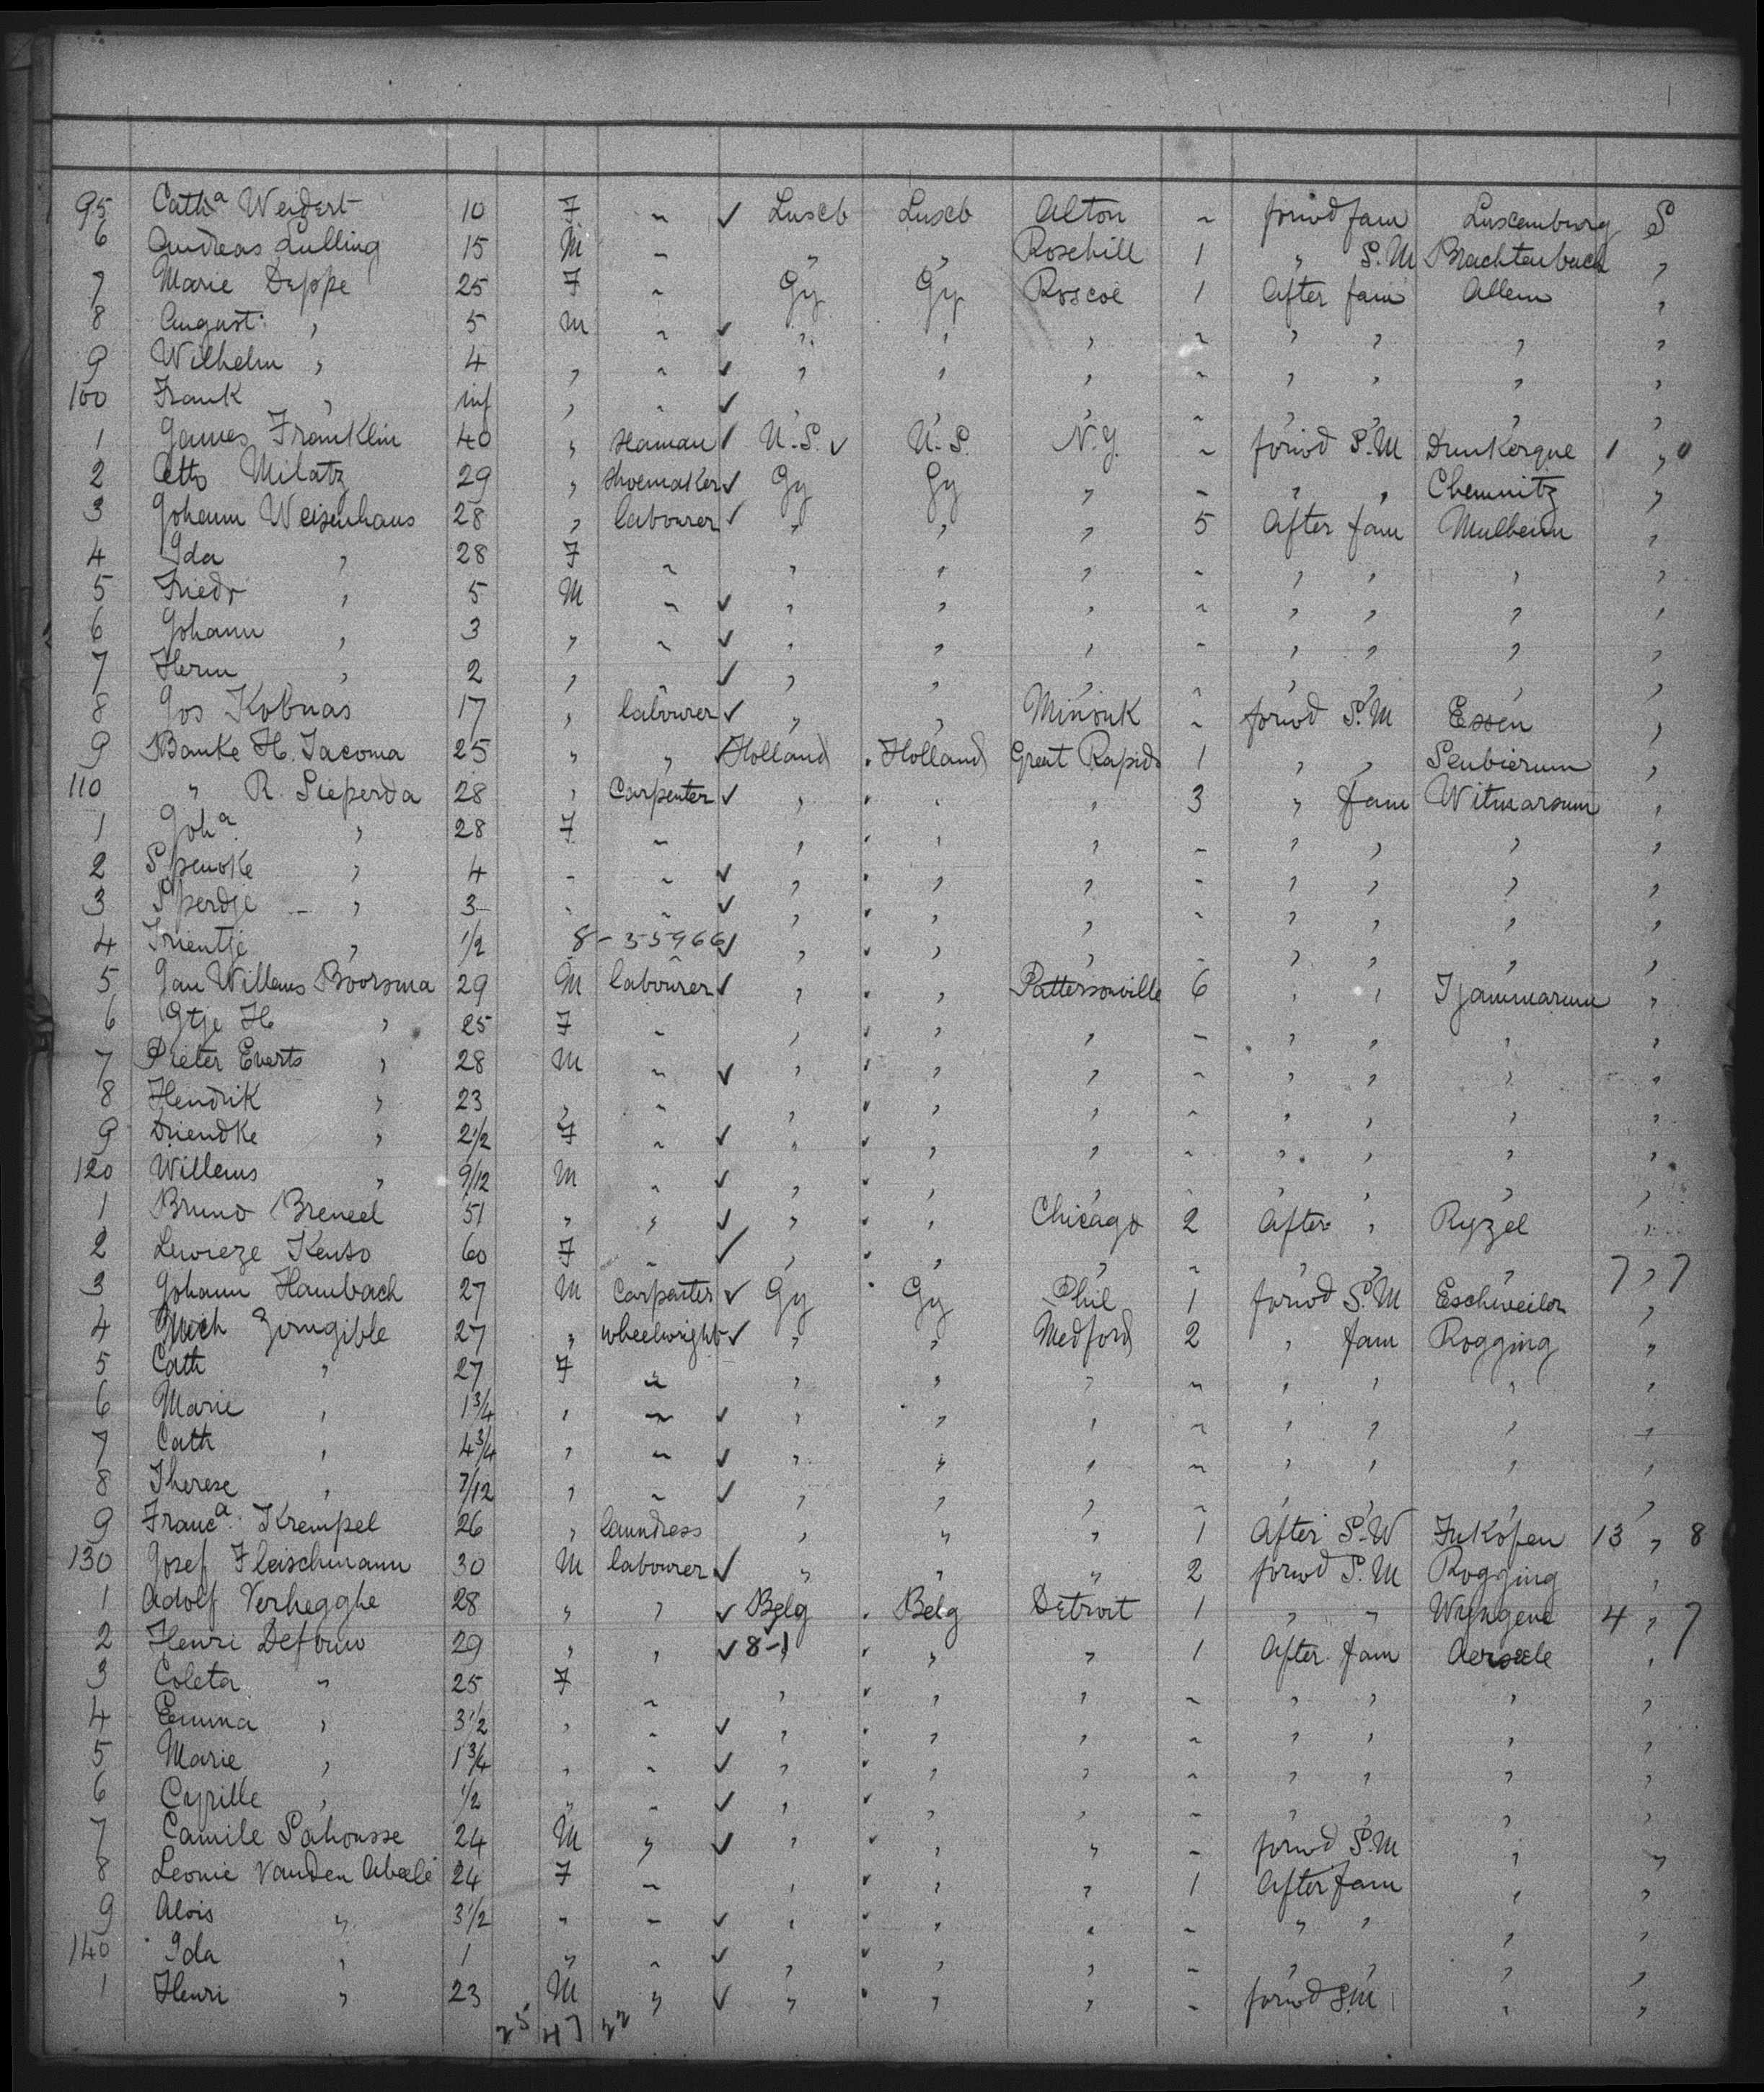 95 Cath^a Weidert 10 F ~ ✓ Luxeb Luxeb Alton ~ forwd fam Luxemburg S
6 Andreas Lulling 15 M ~ " " Rosehill 1 " S.M Brachtenbach "
7 Marie Deppe 25 F ~ Gy Gy Roscoe 1 After fam Allem "
8 August " 5 M ~ ✓ " " " ~ " " " "
9 Wilhelm " 4 " ~ ✓ " " " ~ " " " "
100 Frank " inf " ~ ✓ " " " ~ " " " "
1 James Franklin 40 " Seaman ✓ U.S. ✓ U.S. N.Y. ~ forwd S.M Dunkerque 1 " 0
2 Otto Milatz 29 " Shoemaker ✓ Gy Gy " - " " Chemnitz "
3 Johann Weisenhaus 28 " labourer ✓ " " " 5 After fam Mulheim "
4 Ida " 28 F ~ " " " - " " " "
5 Friedr " 5 M ~ ✓ " " " ~ " " " "
6 Johann " 3 " ~ ✓ " " " - " " " "
7 Herm " 2 " ~ ✓ " " " ~ " " " "
8 Jos Kobnas 17 " labourer ✓ " " Minonk ~ forwd S.M Essen "
9 Banke H. Jacoma 25 " " ✓ Holland Holland Great Rapids 1 " " Senbierum "
110 " R. Sieperda 28 " Carpenter ✓ " " " 3 " fam Witmarsum "
1 Joh^a " 28 F ~ " " " - " " " "
2 " 4 - ~ ✓ " " " - " " " "
3 " 3 - ~ ✓ " " " - " " " "
4 Trientje " 1/2 8-35966 ✓ " " " - " " " "
5 Jan Willems Boorsma 29 M labourer ✓ " " Pattersonville 6 " " Tjummarum "
6 H " 25 F ~ " " " - " " " "
7 Pieter Everts " 28 M ~ ✓ " " " ~ " " " "
8 Hendrik " 23 " ~ " " " ~ " " " "
9 Driendke " 2 1/2 F ~ ✓ " " " ~ " " " "
120 Willems " 9/12 M ~ ✓ " " " ~ " " " "
1 Bruno Breneel 51 " " ✓ " " Chicago 2 After " Ryzel "
2 Lewieze Kenso 60 F ~ ✓ " " " ~ " " " 7 " 7
3 Johann Hambach 27 M Carpenter ✓ Gy Gy Phil 1 forwd S.M Eschweiler "
4 Mich Zirngible 27 " wheelwright ✓ " " Medford 2 " fam Rogging "
5 Cath " 27 F ~ " " " ~ " " " "
6 Marie " 1 3/4 " ~ ✓ " " " ~ " " " "
7 Cath " 4 3/4 " ~ ✓ " " " ~ " " " "
8 Therese " 7/12 " ~ ✓ " " " ~ " " " "
9 Franc^a Krempel 26 " laundress " " " 1 After S.W Inkofen 13 " 8
130 Josef Fleischmann 30 M labourer ✓ " " " 2 forwd S.M Rogging "
1 Adolf Verhegghe 28 " " ✓ Belg Belg Detroit 1 " " Wyngene 4 " 7
2 Henri 29 " " ✓ 8-1 " " 1 After fam Aerseele "
3 Coleta " 25 F ~ " " " ~ " " " "
4 Emma " 3 1/2 " ~ ✓ " " " ~ " " " "
5 Marie " 1 3/4 " ~ ✓ " " " ~ " " " "
6 Cyrille " 1/2 " ~ ✓ " " " ~ " " " "
7 Camile Pahousse 24 M " ✓ " " " - forwd S.M " "
8 Leonie Vanden Abeele 24 F ~ " " " 1 After fam " "
9 Alois " 3 1/2 " ~ ✓ " " " - " " " "
140 Ida " 1 " ~ ✓ " " " - " " " "
1 Henri " 23 M " ✓ " " " - forwd S.M " "
25 47 22